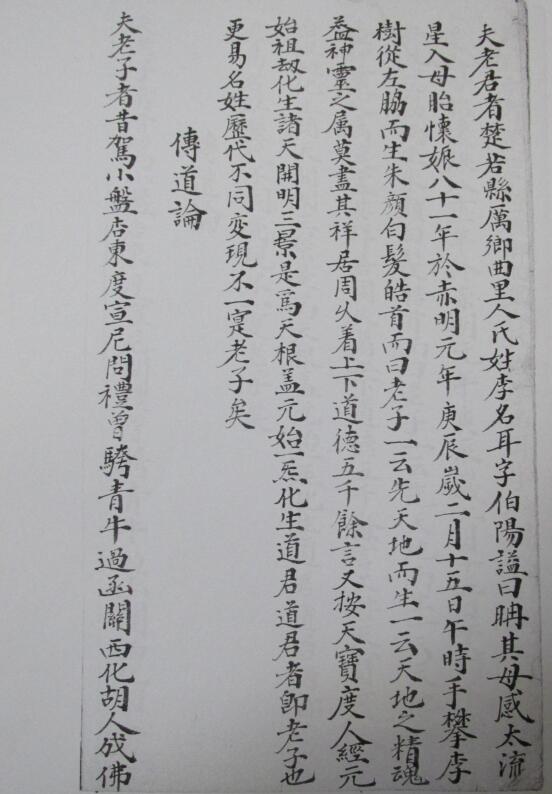 夫老君者楚苦縣厲鄉曲里人氏姓李名耳字伯陽謚曰聃其母感太流
星入母胎懷娠八十一年於赤明元年庚辰歲二月十五日午時手攀李
樹從左脇而生朱顏白髮皓首而曰老子一云先天地而生一云天地之精魂
益神靈之属莫盡其祥居周乆着上下道德五千餘言又按天寶度人經元
始祖刼化生諸天開明三景是爲天根盖元始一炁化生道君道君者卽老子也
更易名姓歷代不同变現不一寔老子矣
傳道論
夫老子者昔駕小盤古東度宣尼問禮曾騎青牛過函關西化胡人成佛